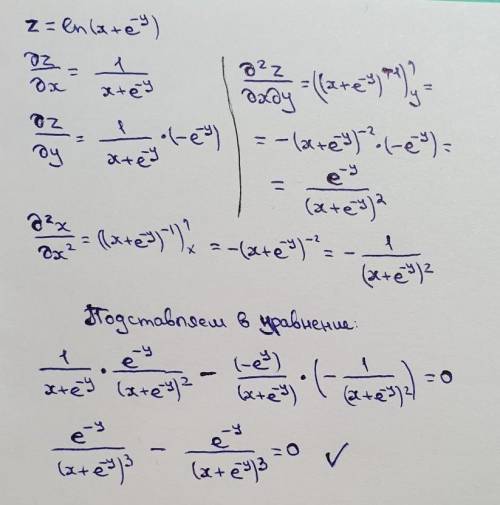 z = ln(x+e^{-y})
∂z/∂x = 1/(x+e^{-y})
∂z/∂y = 1/(x+e^{-y}) · (-e^{-y})
∂²z/∂x∂y = ((x+e^{-y})^{-1})'_y =
= -(x+e^{-y})^{-2} · (-e^{-y}) =
= e^{-y}/(x+e^{-y})²
∂²x/∂x² = ((x+e^{-y})^{-1})'_x = -(x+e^{-y})^{-2} = - 1/(x+e^{-y})²
Подставляем в уравнение:
1/(x+e^{-y}) · e^{-y}/(x+e^{-y})² - (-e^{y})/(x+e^{-y}) · (- 1/(x+e^{-y})²) = 0
e^{-y}/(x+e^{-y})³ - e^{-y}/(x+e^{-y})³ = 0 ✓